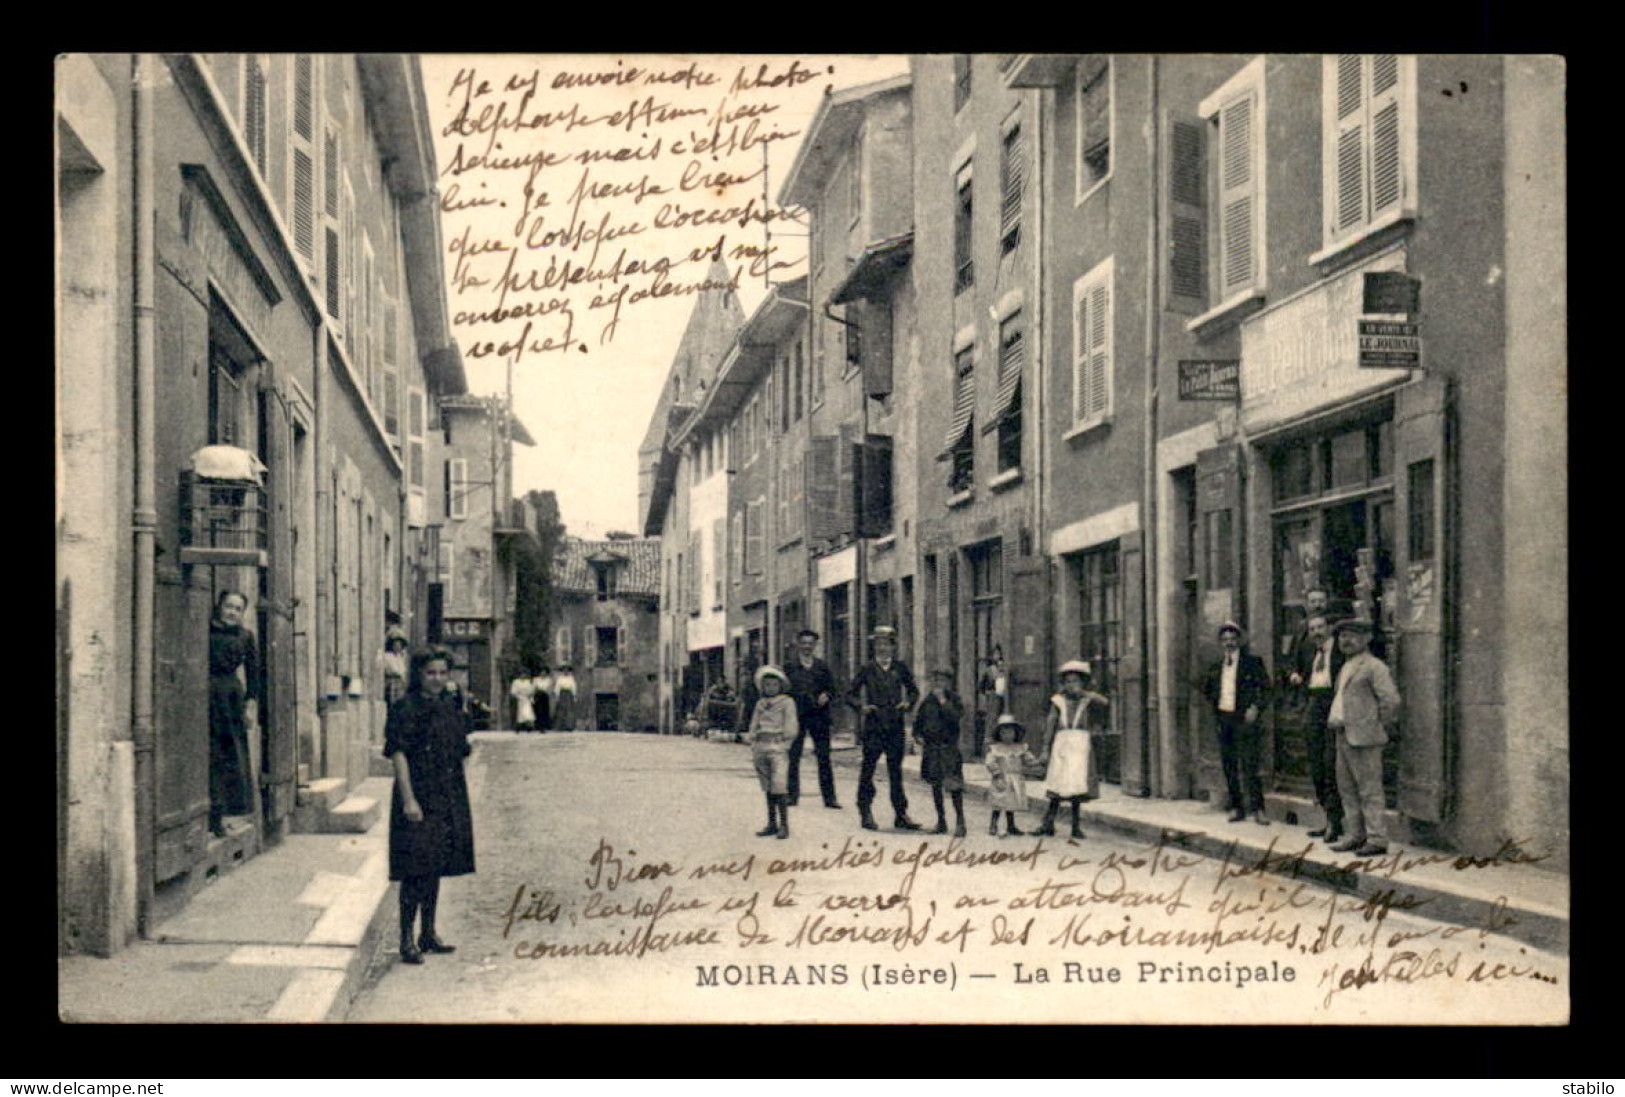 Je vs envoie notre photo.
Alphonse est un peu
serieuse mais c'est bien
lui. Je pense bien
que lorsque l'occasion
se présentera vs me
enverrez également la
votre.
LE JOURNAL
Bien mes amitiés egalement à notre petit cousin votre
fils, lorsque vs le verrez, en attendant qu'il fasse
connaissance de Moirans et des Moirannaises, il y en a de
gentilles ici...
MOIRANS (Isère) — La Rue Principale
www.delcampe.net
stabilo